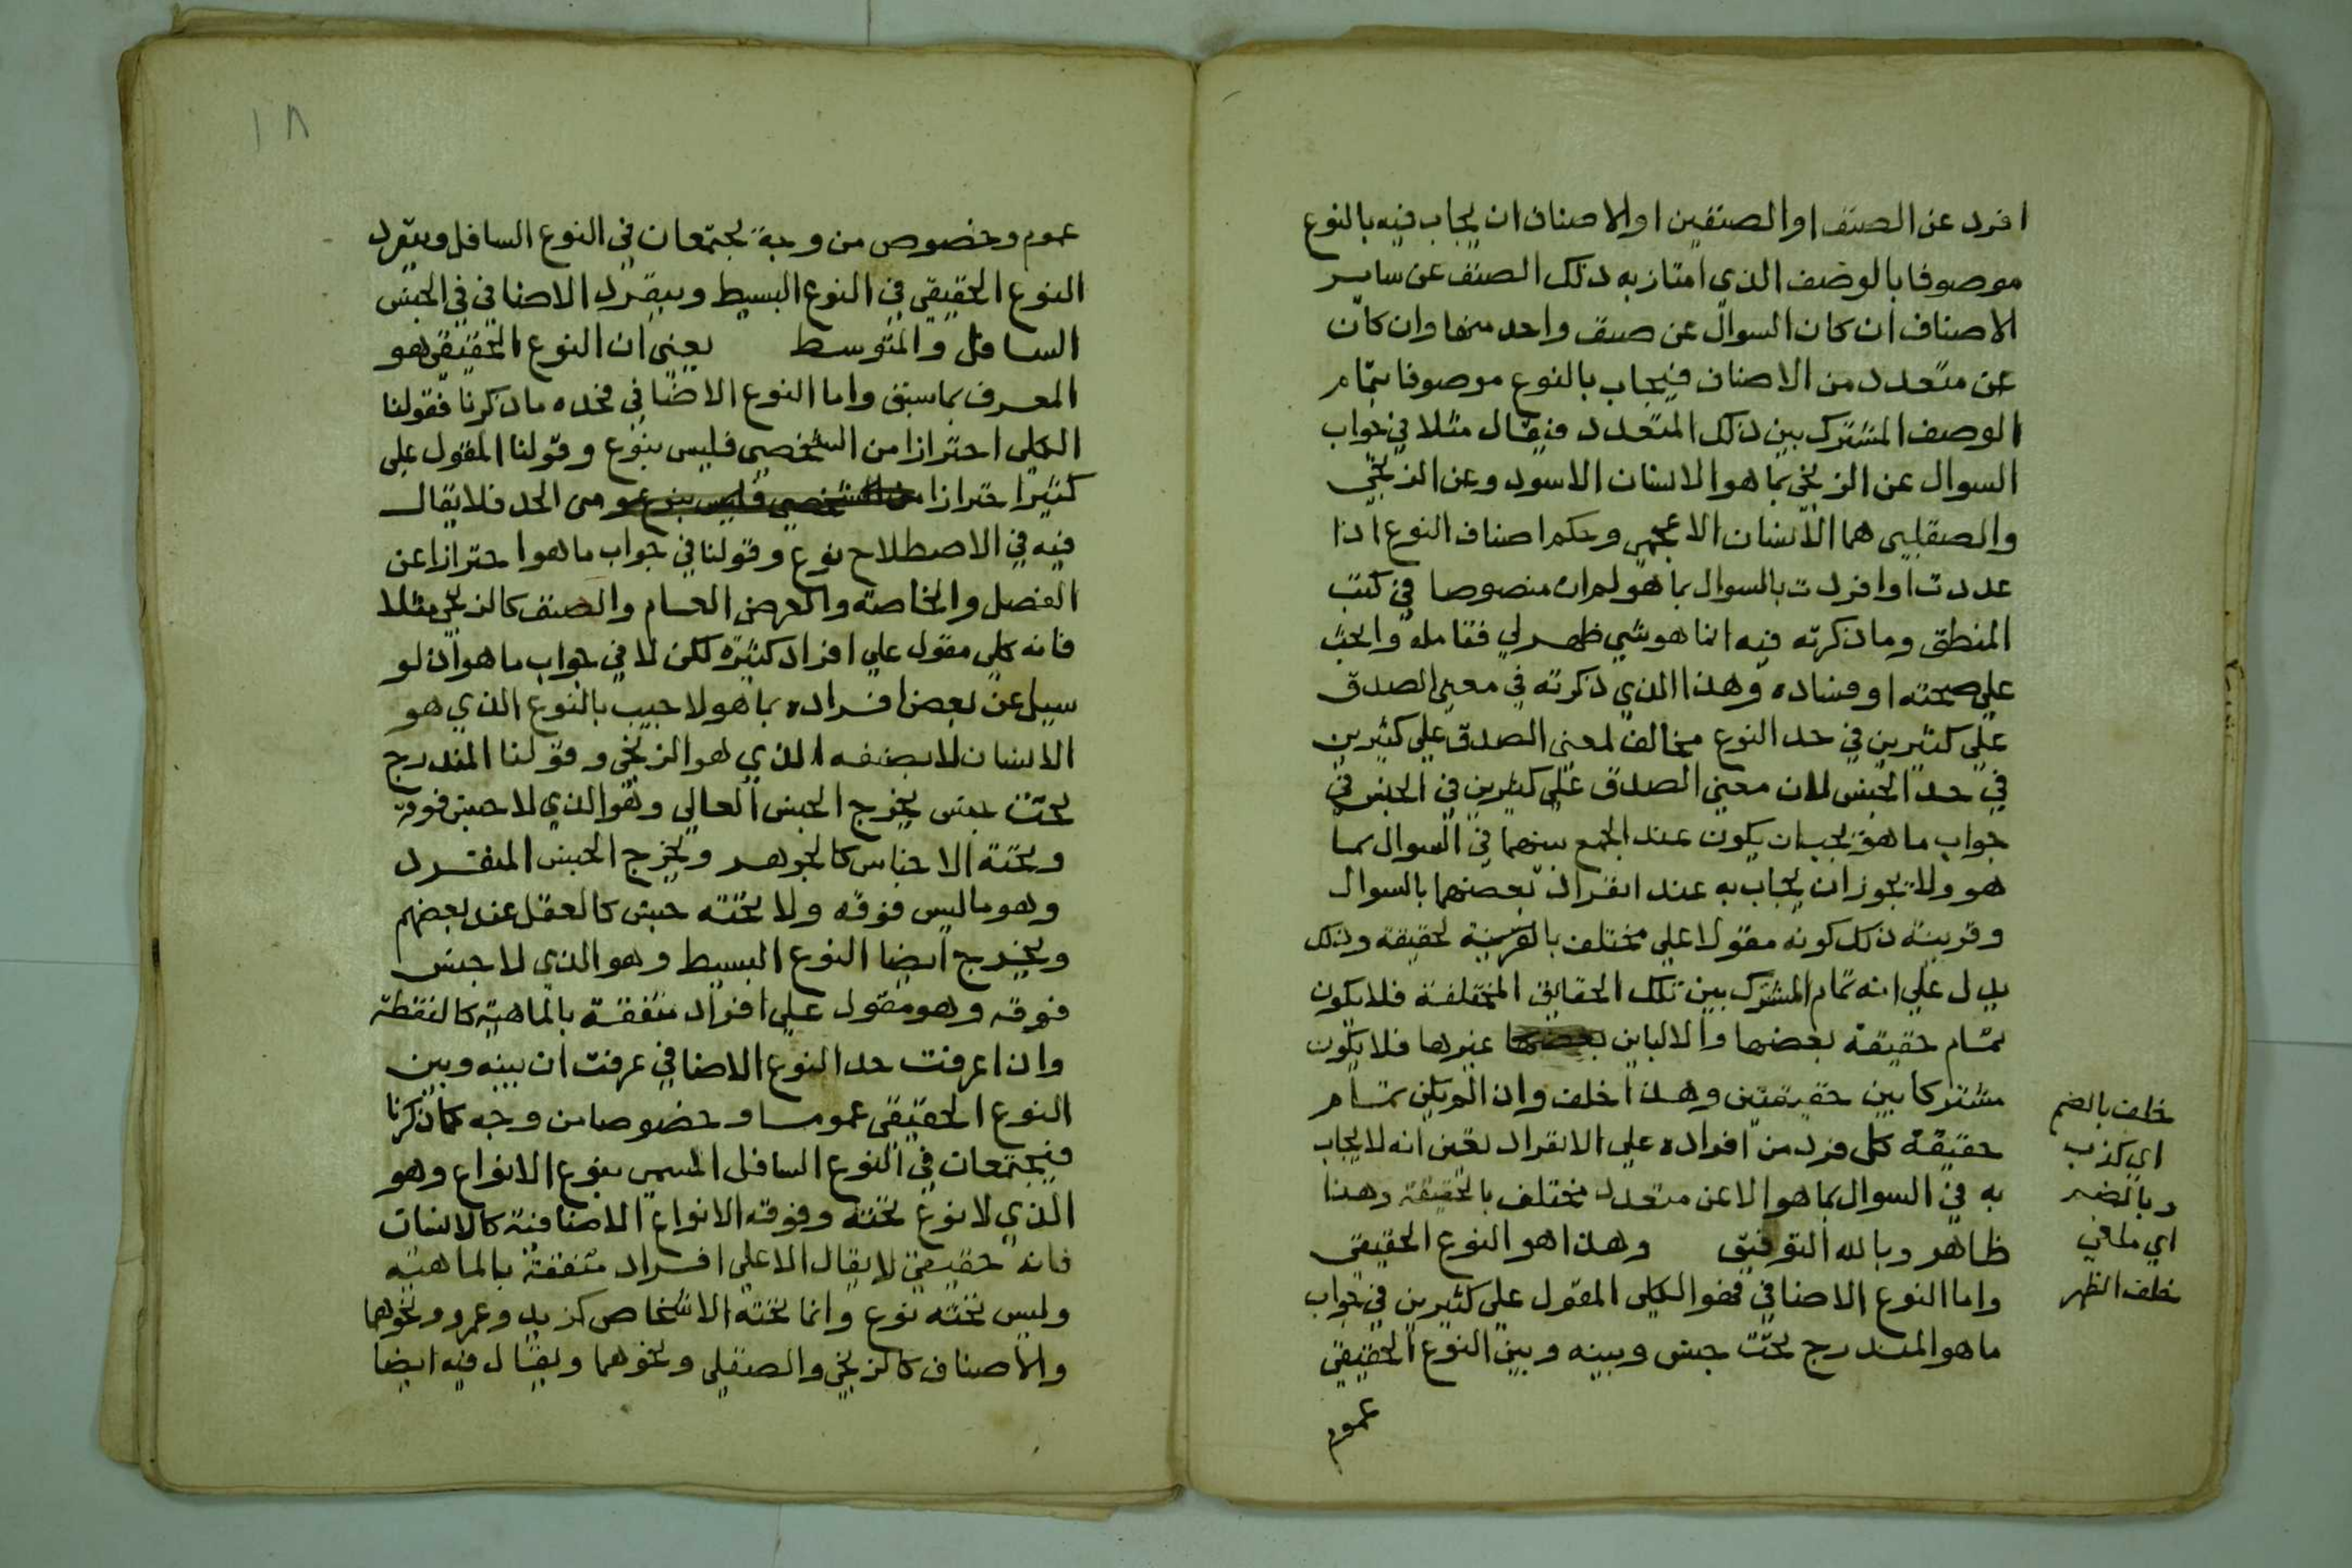 افرد عن الصنف او الصنفين او الاصناف ان يجاب فيه بالنوع
موصوفا بالوصف الذي امتاز به ذلك الصنف عن ساير
الاصناف ان كان السوال عن صنف واحد منها وان كان
عن متعدد من الاصناف فيجاب بالنوع موصوفا بتمام
الوصف المشترك بين ذلك المتعدد فيقال مثلا في جواب
السوال عن الزنجي بما هو الانسان الاسود وعن الزنجي
والصقلبي هما الانسان الاعجمي وحكم اصناف النوع اذا
عددت او افردت بالسوال بما هو لم ار منصوصا في كتب
المنطق وما ذكرته فيه انما هو شي ظهر لي فتامله وابحث
علي صحته او فساده وهذا الذي ذكرته في معني الصدق
علي كثيرين في حد النوع مخالف لمعني الصدق علي كثيرين
في حد الجنس لان معني الصدق علي كثيرين في الجنس في
جواب ما هو يجب ان يكون عند الجمع بينهما في السوال بما
هو ولا يجوز ان يجاب به عند انفراد بعضهما بالسوال
وقرينة ذلك كونه مقولا علي مختلف بالقرينة لحقيقة وذلك
يدل علي انه تمام المشترك بين تلك الحقايق المختلفة فلا يكون
تمام حقيقة بعضها والا لباين غيرها فلا يكون
مشتركا بين حقيقتين وهذا خلف واذا لم يكن تمام
حقيقة كل فرد من افراده علي الانفراد تعين انه لا يجاب
به في السوال بما هو الا عن متعدد مختلف بالحقيقة وهذا
ظاهر وبالله التوفيق وهذا هو النوع الحقيقي
واما النوع الاضافي فهو الكلي المقول علي كثيرين في جواب
ما هو المندرج تحت جنس وبينه وبين النوع الحقيقي
عموم
خلف بالضم
اي كذب
اي ملقي
خلف الظهر
١٨
عموم وخصوص من وجه يجتمعان في النوع السافل وينفرد
النوع الحقيقي في النوع البسيط وينفرد الاضافي في الجنس
السافل والمتوسط يعني ان النوع الحقيقي هو
المعرف بما سبق واما النوع الاضافي فحده ما ذكرنا فقولنا
الكلي احترازا من الشخصي فليس بنوع وقولنا المقول علي
كثير احترازا من الشخصي فليس بنوع من الحد فلا يقال
فيه في الاصطلاح نوع وقولنا في جواب ما هو احترازا عن
الفصل والخاصة والعرض العام والصنف كالزنجي مثلا
فانه كلي مقول علي افراد كثيرة لكن لا في جواب ما هو اذ لو
سيل عن بعض افراده بما هو لاجيب بالنوع الذي هو
الانسان لا بصنفه الذي هو الزنجي وقولنا المندرج
تحت جنس يخرج الجنس العالي وهو الذي لا جنس فوقه
وتحته الاجناس كالجوهر ويخرج الجنس المنفرد
وهو ما ليس فوقه ولا تحته جنس كالعقل عند بعضهم
ويخرج ايضا النوع البسيط وهو الذي لا جنس
فوقه وهو مقول علي افراد متفقة بالماهية كالنقطة
واذا عرفت حد النوع الاضافي عرفت ان بينه وبين
النوع الحقيقي عموما وخصوصا من وجه كما ذكرنا
فيجتمعان في النوع السافل المسمي بنوع الانواع وهو
الذي لا نوع تحته وفوقه الانواع الاضافية كالانسان
فانه حقيقي لا يقال الا علي افراد متفقة بالماهية
وليس تحته نوع وانما تحته الاشخاص كزيد وعمرو ونحوهما
والاصناف كالزنجي والصقلي ونحوهما ويقال فيه ايضا